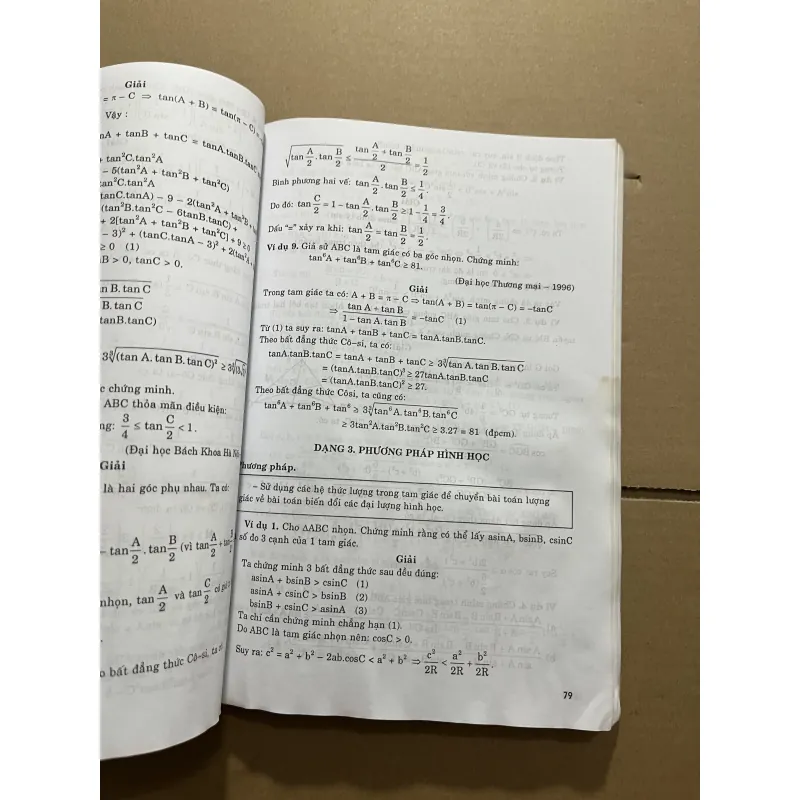 Giải
= π – C ⇒ tan(A + B) = tan(π – C) =
Vậy :
nA + tanB + tanC = tanA.tanB.tanC
+ tan²C.tan²A
– 5(tan²A + tan²B + tan²C)
an²C.tan²A
tanC.tanA) – 9 – 2(tan²A + tan²B +
(tan²B.tan²C – 6tanB.tanC) +
+ 2[tan²A + tan²B + tan²C] + 9 ≥ 0
– 3)² + (tanC.tanA – 3)² + 2(tan²A +
≥ 0 (1)
B > 0, tanC > 0.
n B. tan C
B. tan C
tanB.tanC)
3∛(tan A. tan B. tan C)² ≥ 3
c chứng minh.
ABC thỏa mãn điều kiện:
ng: 3/4 ≤ tan C/2 < 1.
(Đại học Bách Khoa Hà Nội
Giải
là hai góc phụ nhau. Ta có:
– tan A/2 . tan B/2 (vì tan A/2 +
nhọn, tan A/2 và tan C/2 có
o bất đẳng thức Cô–si, ta có
√(tan A/2 . tan B/2) ≤ (tan A/2 + tan B/2)/2 = 1/2
Bình phương hai vế: tan A/2 . tan B/2 ≤ 1/4.
Do đó: tan C/2 = 1 – tan A/2 . tan B/2 ≥ 1 – 1/4 = 3/4.
Dấu “=” xảy ra khi: tan A/2 = tan B/2 = 1/2.
Ví dụ 9. Giả sử ABC là tam giác có ba góc nhọn. Chứng minh:
tan⁶A + tan⁶B + tan⁶C ≥ 81.
(Đại học Thương mại – 1996)
Giải
Trong tam giác ta có: A + B = π – C ⇒ tan(A + B) = tan(π – C) = –tanC
⇒ (tan A + tan B)/(1 – tan A. tan B) = –tanC (1)
Từ (1) ta suy ra: tanA + tanB + tanC = tanA.tanB.tanC.
Theo bất đẳng thức Cô–si, ta có:
tanA.tanB.tanC = tanA + tanB + tanC ≥ 3∛(tan A. tan B. tan C)
= (tanA.tanB.tanC)³ ≥ 27tanA.tanB.tanC
= (tanA.tanB.tanC)² ≥ 27.
Theo bất đẳng thức Côsi, ta cũng có:
tan⁶A + tan⁶B + tan⁶ ≥ 3∛(tan⁶A. tan⁶B. tan⁶C)
≥ 3tan²A.tan²B.tan²C ≥ 3.27 = 81 (đpcm).
DẠNG 3. PHƯƠNG PHÁP HÌNH HỌC
hương pháp.
– Sử dụng các hệ thức lượng trong tam giác để chuyển bài toán lượng
giác về bài toán biến đổi các đại lượng hình học.
Ví dụ 1. Cho ΔABC nhọn. Chứng minh rằng có thể lấy asinA, bsinB, csinC
số đo 3 cạnh của 1 tam giác.
Giải
Ta chứng minh 3 bất đẳng thức sau đều đúng:
asinA + bsinB > csinC (1)
asinA + csinC > bsinB (2)
bsinB + csinC > asinA (3)
Ta chỉ cần chứng minh chẳng hạn (1).
Do ABC là tam giác nhọn nên: cosC > 0.
Suy ra: c² = a² + b² – 2ab.cosC < a² + b² ⇒ c²/2R < a²/2R + b²/2R.
79